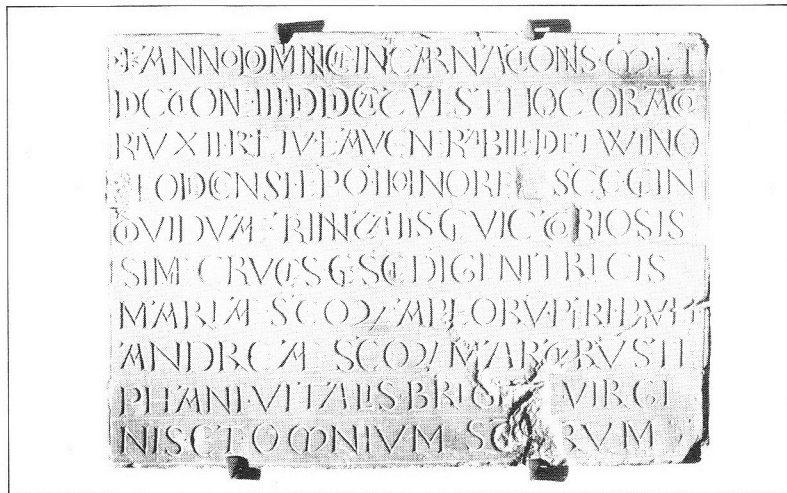 ✶ANNODOMNICEINCARNATIONS·M·L·I
DCTIONE·III·DEDICATŪESTHOCORATO
RIVXII·KL·IVL·AVENERABILIDIETWINO
LEODIENSI·EPO·IHONORE SCEGIN
DIVIDVAETRINITATISGVICTORIOSIS
SIMECRVCISGSCEDIGENITRICIS
MARIAESCORAPLORVPETRI
ANDREAESCORMARTIRVSTE
PHANI·VITALIS·BRIGI VIRGI
NISET·OMNIVMSCORVM